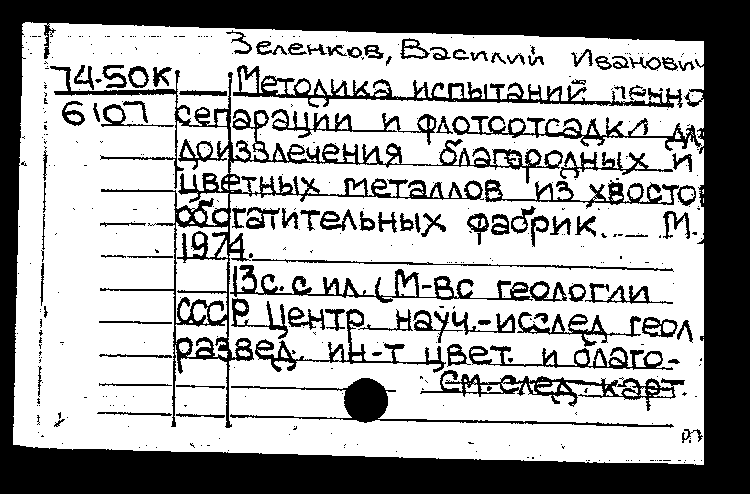 Зеленков, Василий Иванович
74-50К Методика испытаний пенно
6107 сепарации и флотоотсадки для
доизвлечения благородных и
цветных металлов из хвостов
обогатительных фабрик. М.,
1974.
13 с. с ил. (М-во геологии
СССР. Центр. науч.-исслед. геол.
развед. ин-т цвет. и благо-
См. след. карт.